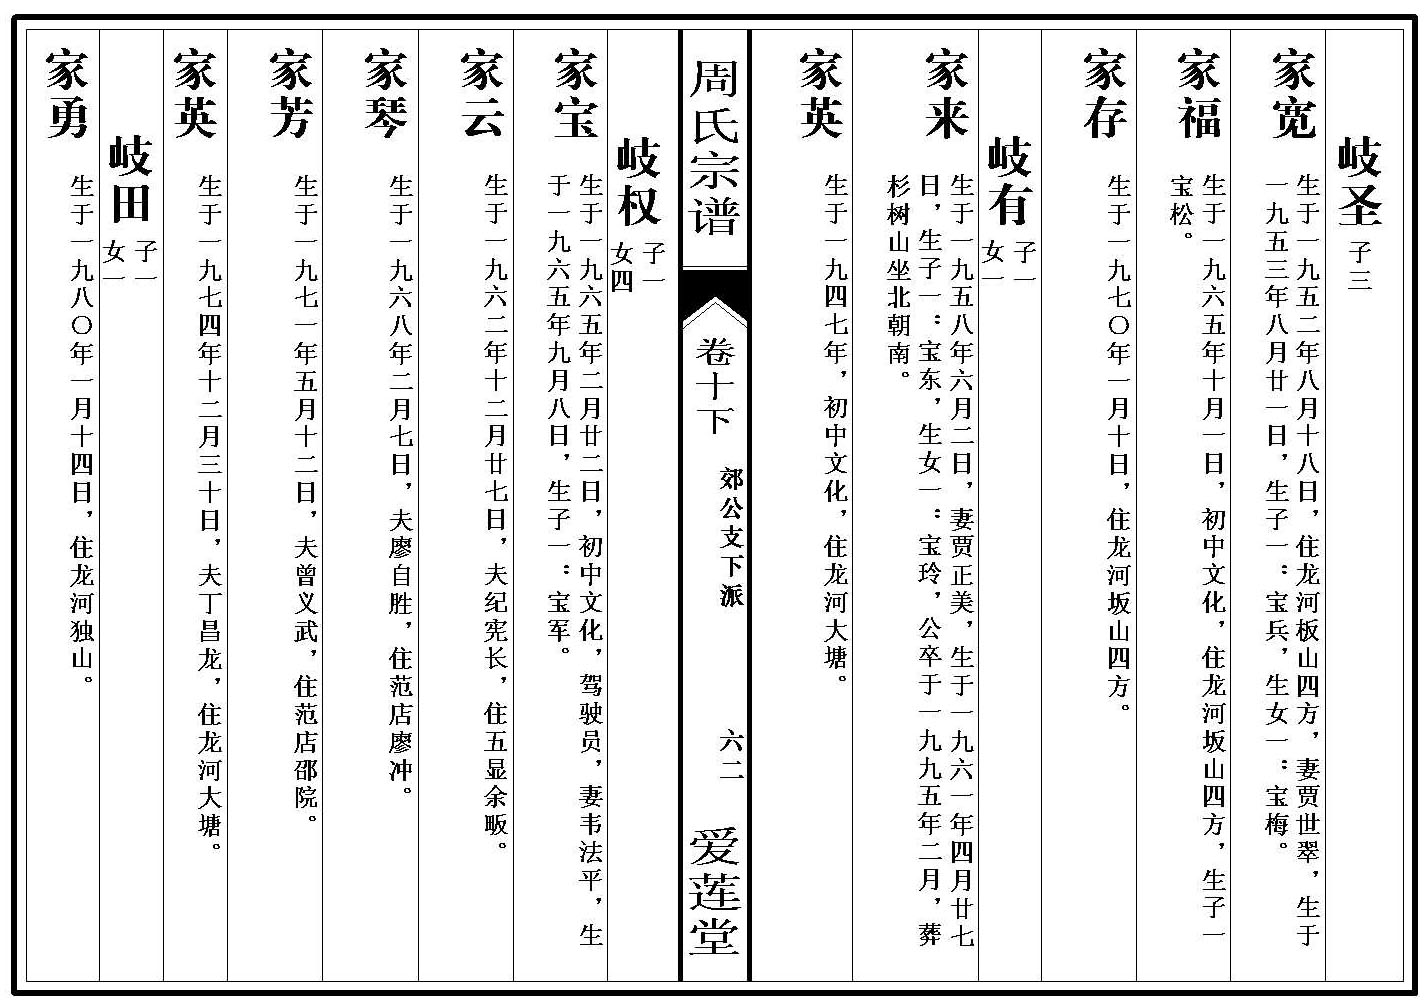 岐圣
子三
家宽
生于一九五二年八月十八日，住龙河板山四方，妻贾世翠，生于
一九五三年八月廿一日，生子一：宝兵，生女一：宝梅。
家福
生于一九六五年十月一日，初中文化，住龙河坂山四方，生子一
宝松。
家存
生于一九七〇年一月十日，住龙河坂山四方。
岐有
子一
女一
家来
生于一九五八年六月二日，妻贾正美，生于一九六一年四月廿七
日，生子一：宝东，生女一：宝玲，公卒于一九九五年二月，葬
杉树山坐北朝南。
家英
生于一九四七年，初中文化，住龙河大塘。
周氏宗谱
卷十下
郊公支下派
六二
爱莲堂
岐权
子一
女四
家宝
生于一九六五年二月廿二日，初中文化，驾驶员，妻韦法平，生
于一九六五年九月八日，生子一：宝军。
家云
生于一九六二年十二月廿七日，夫纪宪长，住五显余畈。
家琴
生于一九六八年二月七日，夫廖自胜，住范店廖冲。
家芳
生于一九七一年五月十二日，夫曾义武，住范店邵院。
家英
生于一九七四年十二月三十日，夫丁昌龙，住龙河大塘。
岐田
子一
女一
家勇
生于一九八〇年一月十四日，住龙河独山。